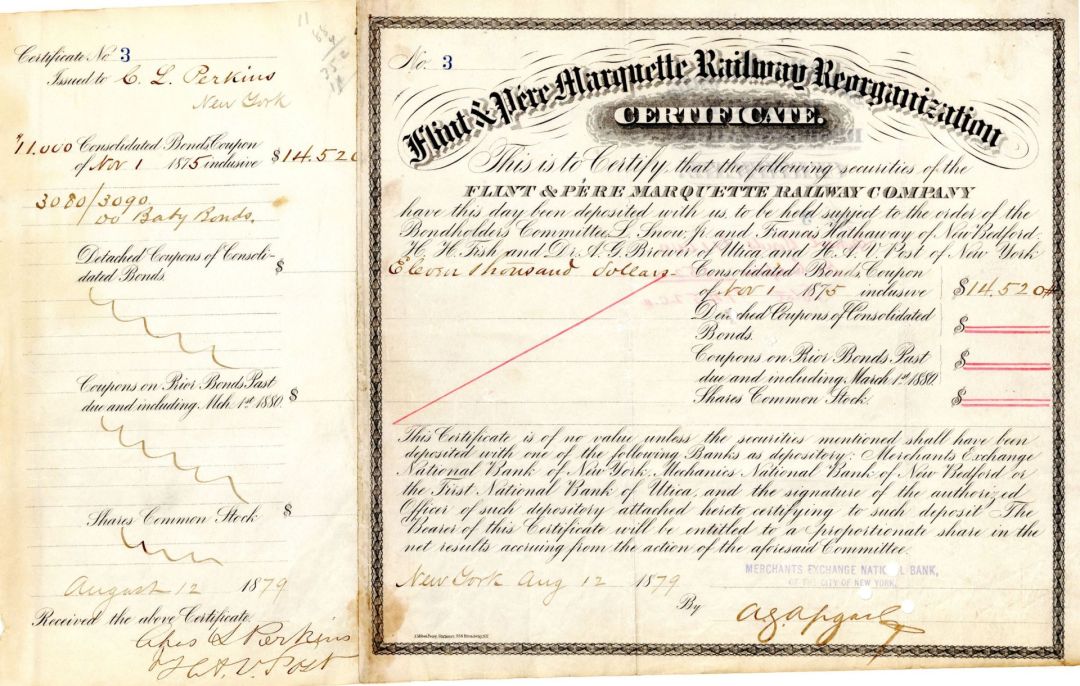 Certificate No 3
Issued to C. L. Perkins
New York
"11.000 Consolidated Bonds Coupon
of Nov 1 1875 inclusive $14.520
3080/3090
Baby Bonds.
Detached Coupons of Consoli-
dated Bonds. $
Coupons on Prior Bonds Past
due and including Mch. 1st 1880. $
Shares Common Stock $
August 12 1879
Received the above Certificate.
Chas L Perkins
H.A.V. Post
No. 3
Flint & Père Marquette Railway Reorganization
CERTIFICATE.
This is to Certify, that the following securities of the
FLINT & PÈRE MARQUETTE RAILWAY COMPANY
have this day been deposited with us, to be held subject to the order of the
Bondholders Committee, L. Snow, Jr. and Francis Hathaway of New Bedford,
H. H. Fish and Dr. A. G. Brower of Utica and H. A. V. Post of New York
Eleven thousand dollars Consolidated Bonds, Coupon
of Nov 1 1875 inclusive $14.520
Detached Coupons of Consolidated
Bonds. $
Coupons on Prior Bonds Past
due and including March 1st 1880. $
Shares Common Stock. $
This Certificate is of no value unless the securities mentioned shall have been
deposited with one of the following Banks as depository: Merchants Exchange
National Bank of New York, Mechanics National Bank of New Bedford or
the First National Bank of Utica, and the signature of the authorized
Officer of such depository attached hereto certifying to such deposit The
Bearer of this Certificate will be entitled to a proportionate share in the
net results accruing from the action of the aforesaid Committee.
New York Aug 12 1879
MERCHANTS EXCHANGE NATIONAL BANK,
OF THE CITY OF NEW YORK,
By A.G. Apgar